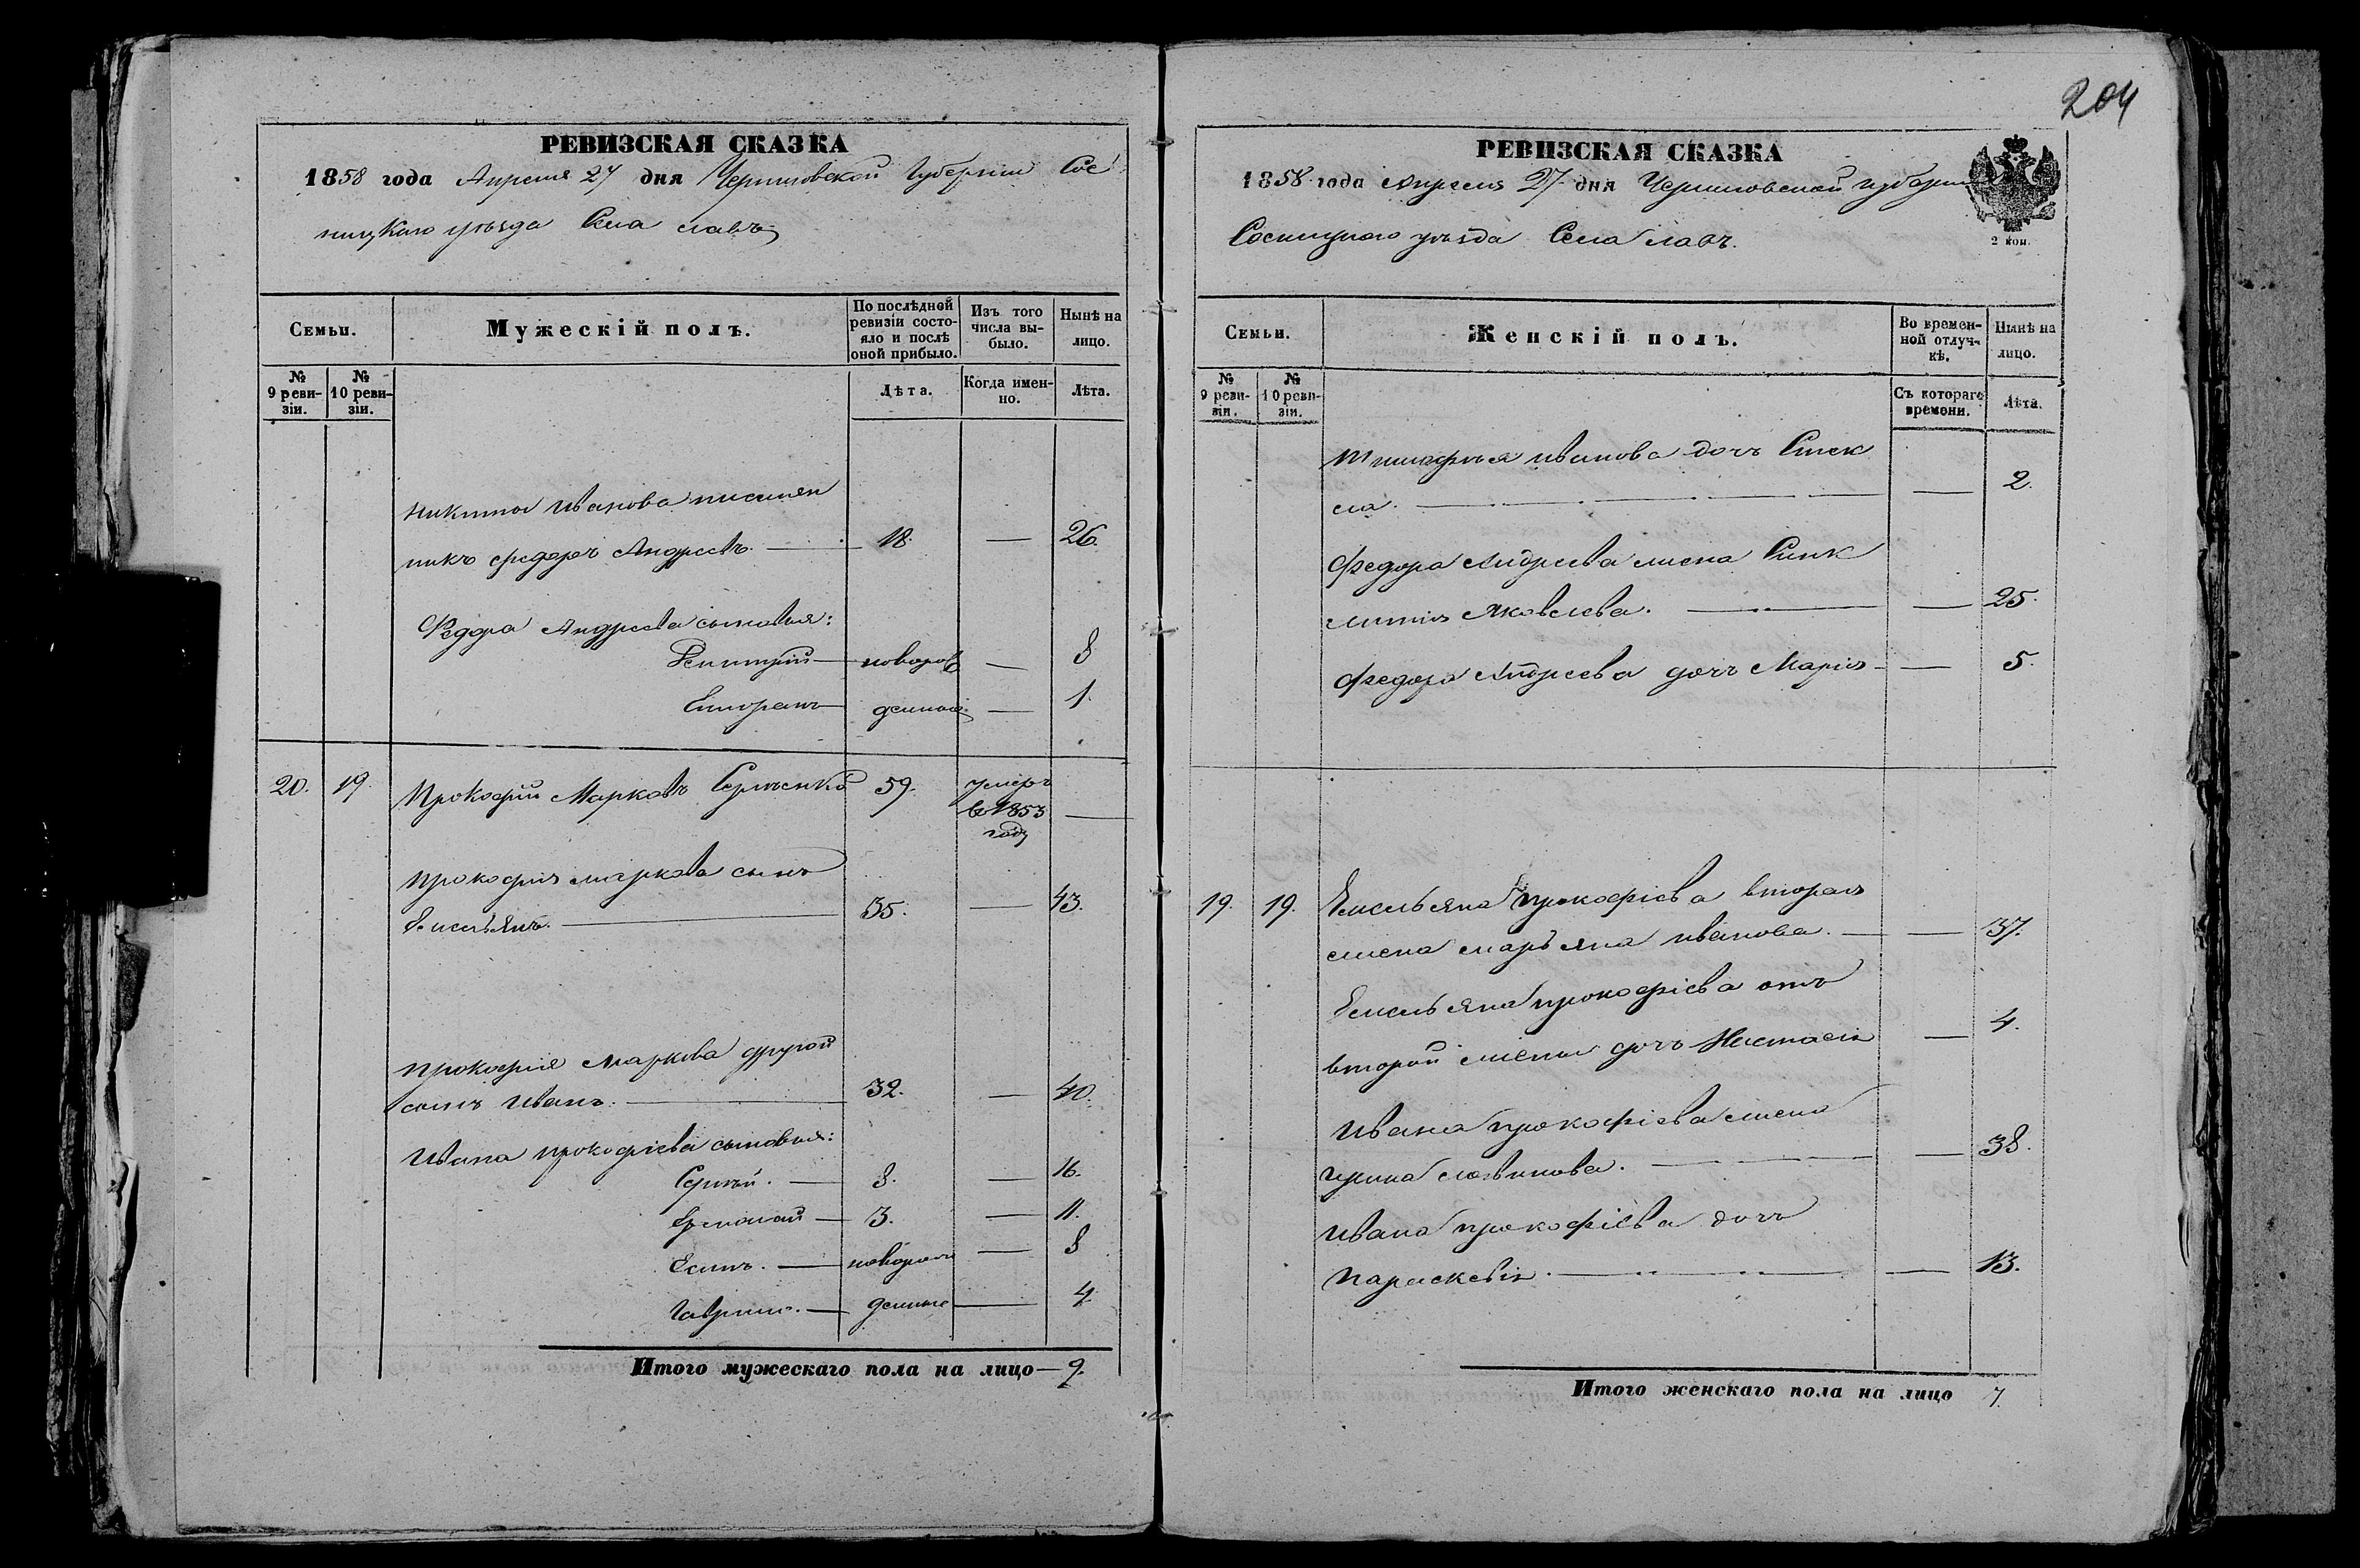 204
РЕВИЗСКАЯ СКАЗКА
1858 года Апреля 27 дня Черниговской Губернии Сос
ницкаго уѣзда Села
Семьи.
Мужескій полъ.
По послѣдней ревизіи состояло и послѣ оной прибыло.
Изъ того числа выбыло.
Нынѣ на лицо.
№ 9 ревизіи.
№ 10 ревизіи.
Лѣта.
Когда именно.
Лѣта.
Никиты Иванова племян
никъ Федоръ Андреевъ. — 18. — 26.
Федора Андреева сыновья:
Дмитрий — новорож — 8
— денные — 1.
20. 19. Прокофий Марковъ 59. умеръ
в 1853
году —
Прокофия Маркова сынъ
Емельянъ. — 35. — 43.
Прокофия Маркова другой
сынъ Иванъ. — 32. — 40.
Ивана Прокофіева сыновья:
Сергѣй. — 8. — 16.
Ермолай — 3. — 11.
— новорож — 8
Гаврило. — денные — 4
Итого мужескаго пола на лицо — 9.
РЕВИЗСКАЯ СКАЗКА
1858 года Апреля 27 дня Черниговской губернии
Сосницкаго уѣзда Села
2 коп.
Семьи.
Женскій полъ.
Во временной отлучкѣ.
Нынѣ на лицо.
№ 9 ревизіи.
№ 10 ревизіи.
Съ котораго времени.
Лѣта.
Тимофѣя Иванова дочь Фек
ла. — — 2.
Федора Андреева жена
Яковлева. — — 25.
Федора Андреева дочь Марія — — 5.
19. 19. Емельяна Прокофіева вторая
жена Марьяна Иванова. — — 37.
Емельяна Прокофіева отъ
второй жены дочь Настасія — 4.
Ивана Прокофіева жена
Ирина — — 38.
Ивана Прокофіева дочь
Параскевія. — — 13.
Итого женскаго пола на лицо 7.